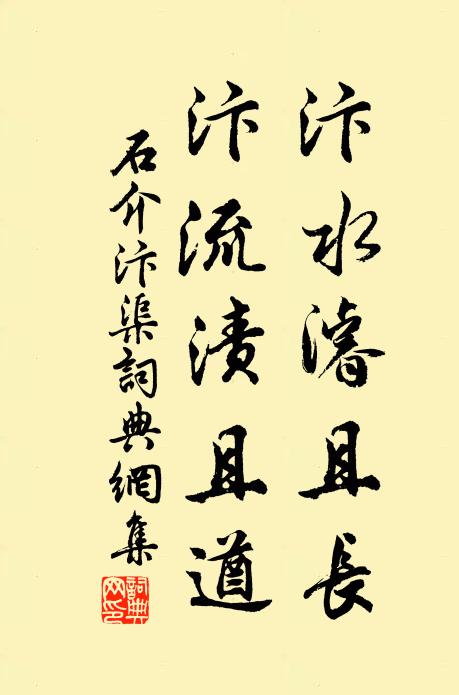 汴水濬且長
汴流漬且遒
石介汴渠詞典網集
詞典網印